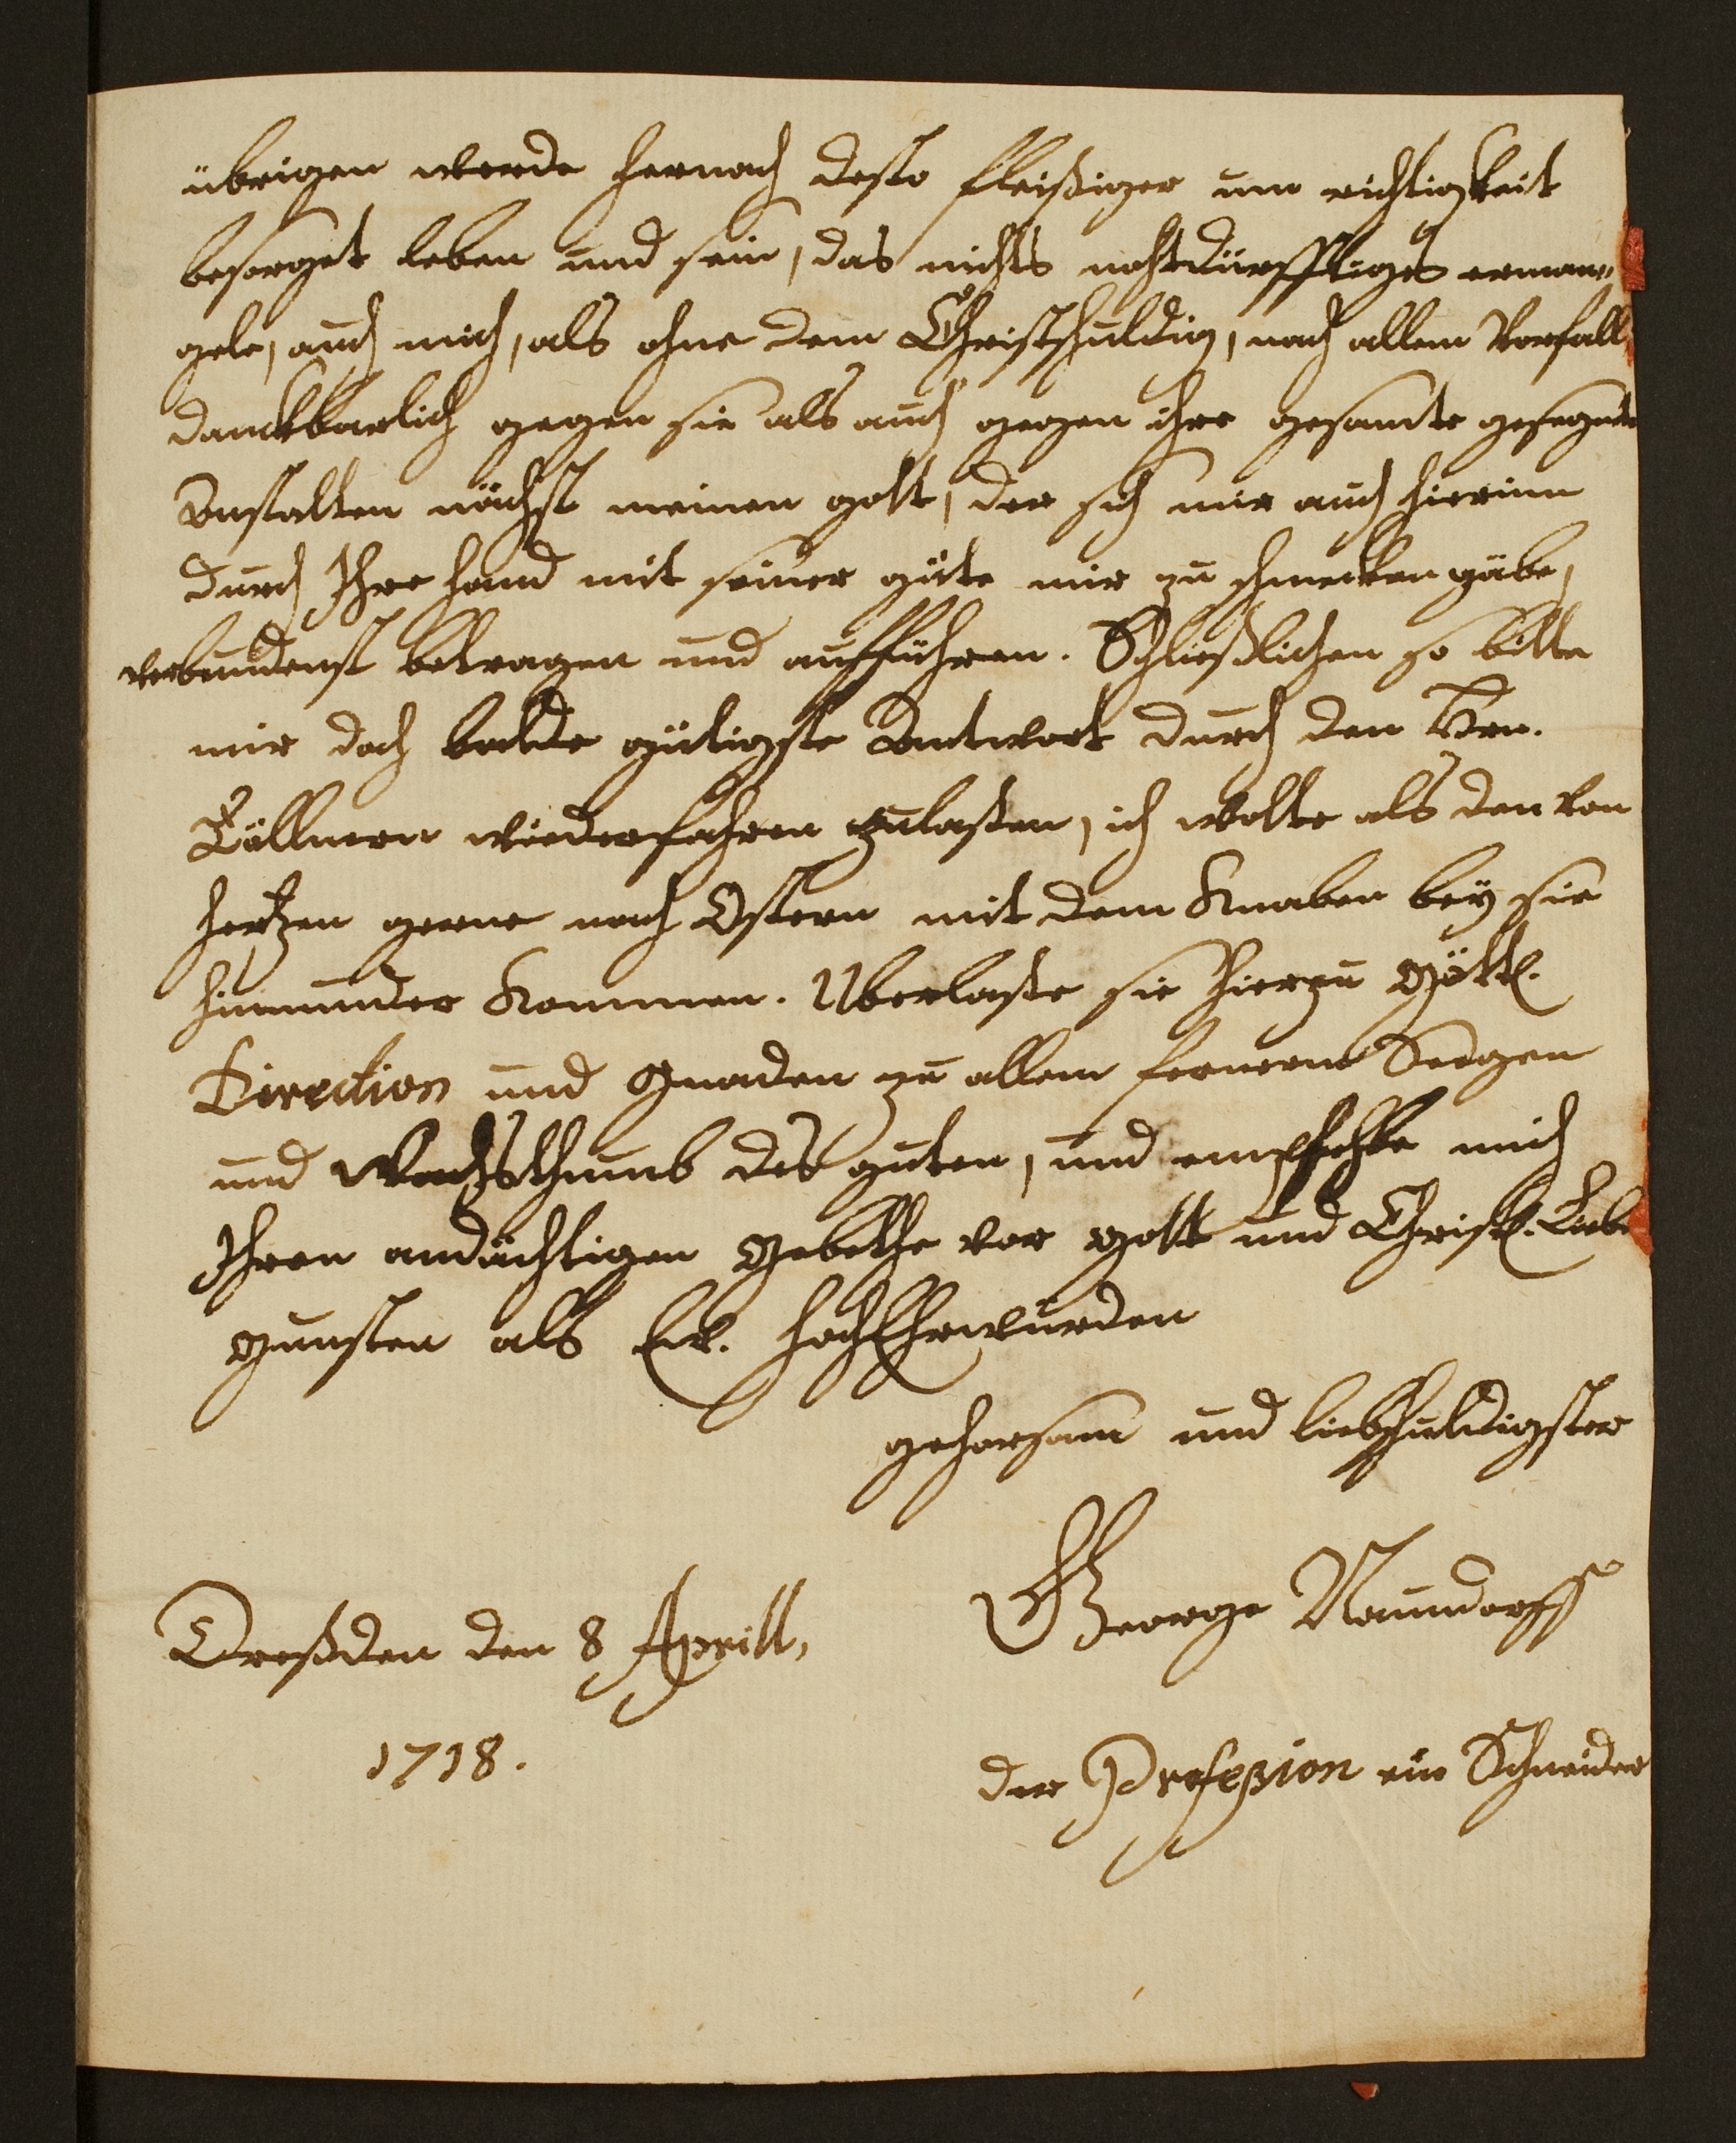 übrigen werde hernach desto fleißiger um richtigkeit
besorget leben und sein, das nichts nohtdürfftiges erman„
gele, auch mich, als ohne dem Christschuldig, nach allem Vorfall
danckbarlich gegen sie als auch gegen ihre gesamte gesegnete
Anstalten nächst meinen gott, der sich mir auch hierinn
durch Ihre hand mit seiner güte mir zu schmecken gäbe,
verbundenst betragen und aufführen. Schließlichen so bitte
mir doch balde gütigste Antwort durch den Hrn.
Töllnern wiederfahren zulaßen, ich wolte als den von
hertzen gerne nach Ostern mit dem Knaben bey sie
hinunder kommen. Uberlaße sie hierzu Göttl.
Direction und Gnaden zu allem fernern Seegen
und Wachsthumb des guten, und empfehle mich
Ihren andächtigen Gebethe vor Gott und Christl. Liebe
gunsten als Ew. HochEhrwürden
gehorsam und liebschuldigster
George Naumdorff
Dreßden den 8 Aprill,
1718.
der Profeßion ein Schneider